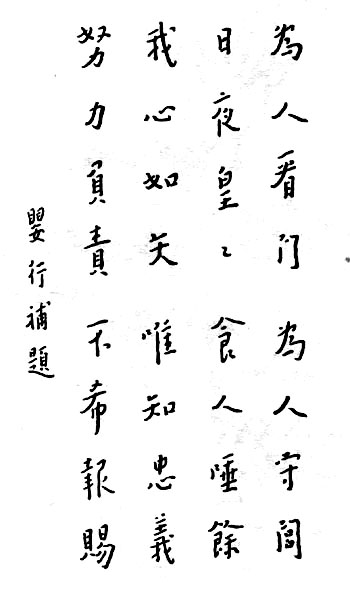 為人看門 為人守閭
日夜皇〻 食人唾餘
我心如矢 唯知忠義
努力負責 不希報賜
嬰行補題